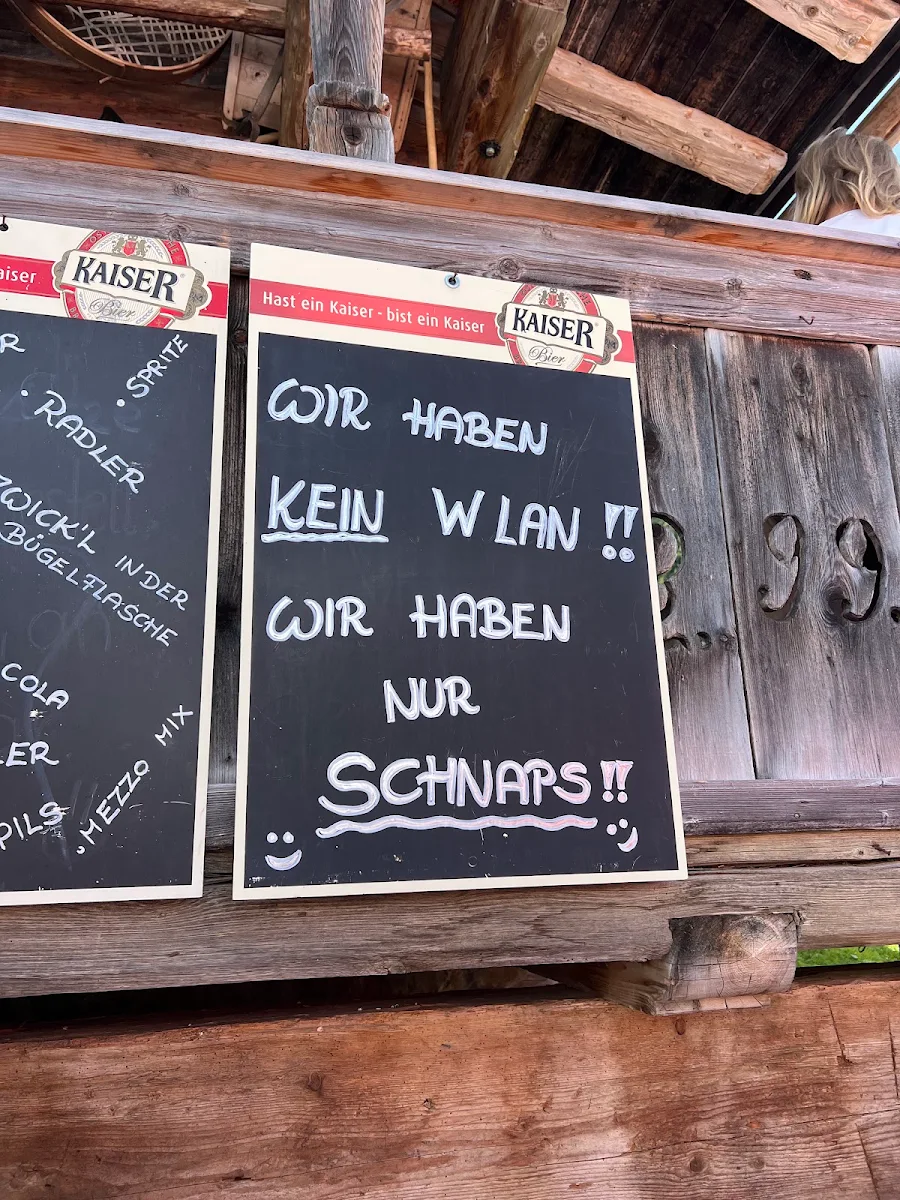 aiser
KAISER
Bier
R
• SPRITE
• RADLER
ZWICK'L IN DER
BÜGELFLASCHE
COLA
LER
MEZZO MIX
PILS
Hast ein Kaiser - bist ein Kaiser
KAISER
Bier
WIR HABEN
KEIN W LAN !!
WIR HABEN
NUR
SCHNAPS !!
99